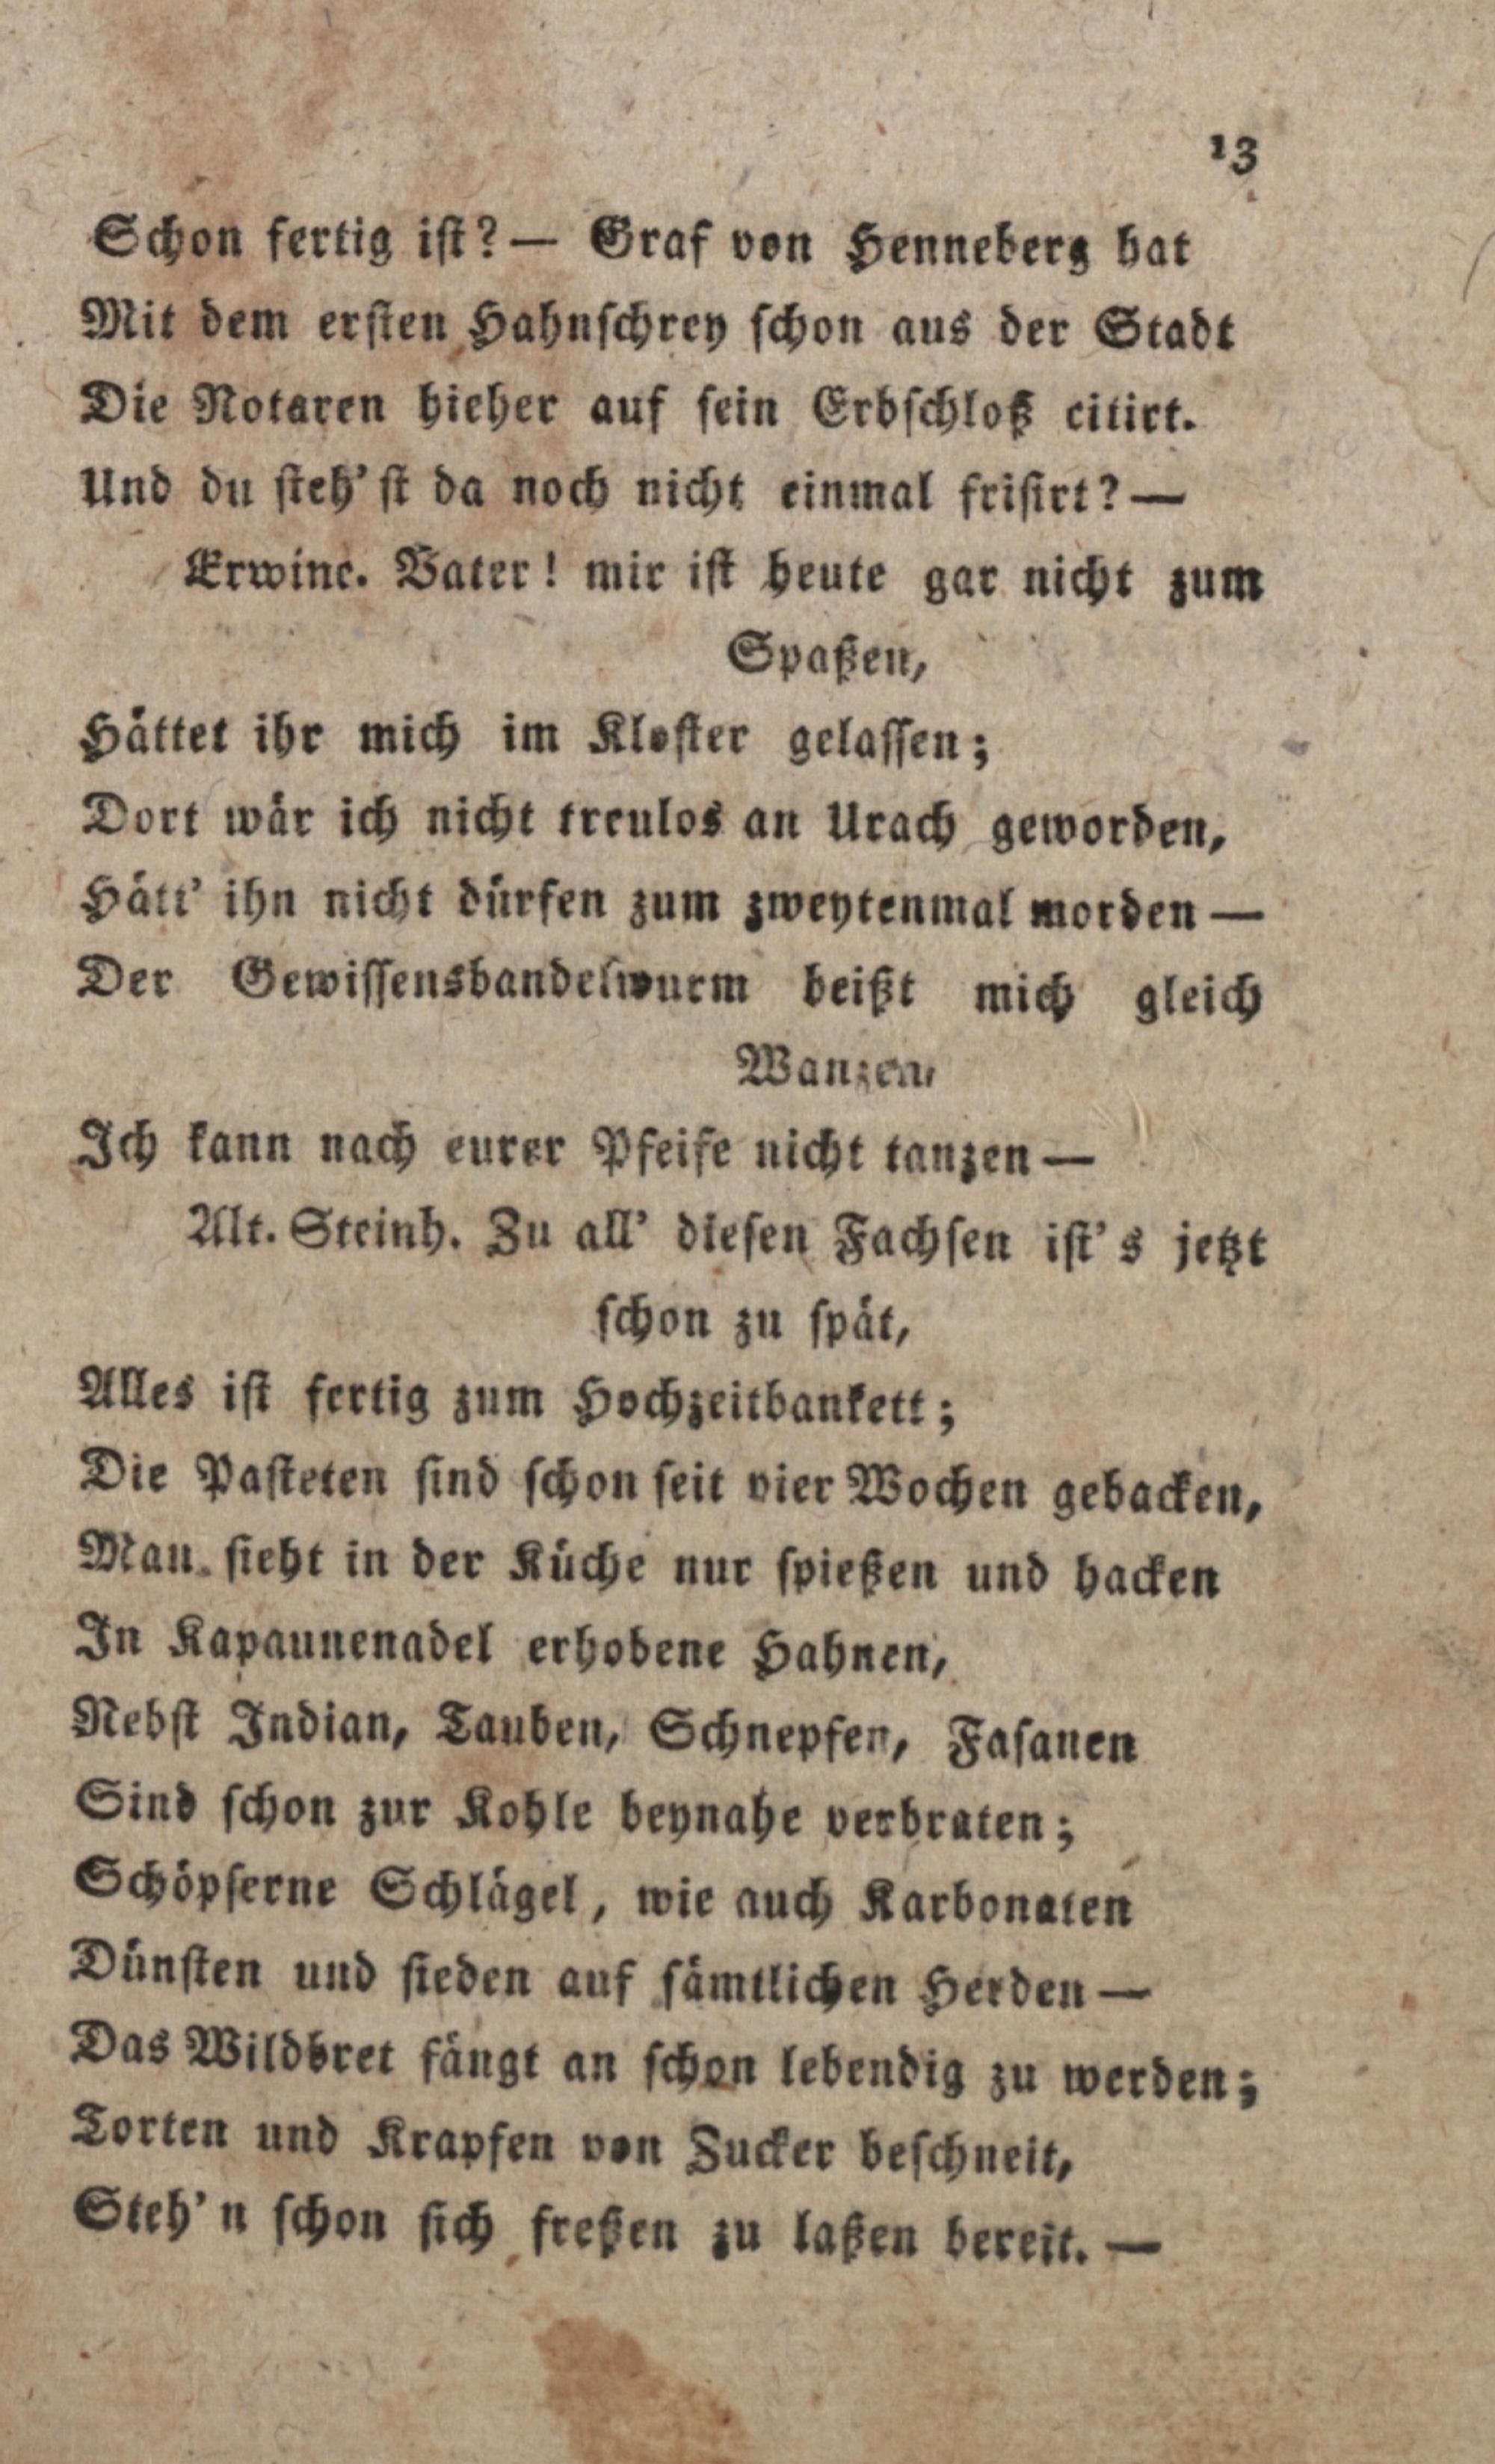 13
Schon fertig ist? — Graf von Henneberg hat
Mit dem ersten Hahnschrey schon aus der Stadt
Die Notaren hieher auf sein Erbschloß citirt.
Und du steh'st da noch nicht einmal frisirt? —
Erwine. Vater! mir ist heute gar nicht zum
Spaßen,
Hättet ihr mich im Kloster gelassen;
Dort wär ich nicht treulos an Urach geworden,
Hätt' ihn nicht dürfen zum zweytenmal morden —
Der Gewissensbandelwurm beißt mich gleich
Wanzen,
Ich kann nach eurer Pfeife nicht tanzen —
Alt. Steinh. Zu all' diesen Fachsen ist's jetzt
schon zu spät,
Alles ist fertig zum Hochzeitbankett;
Die Pasteten sind schon seit vier Wochen gebacken,
Man sieht in der Küche nur spießen und hacken
In Kapaunenadel erhobene Hahnen,
Nebst Indian, Tauben, Schnepfen, Fasanen
Sind schon zur Kohle beynahe verbraten;
Schöpserne Schlägel, wie auch Karbonaten
Dünsten und sieden auf sämtlichen Herden —
Das Wildbret fängt an schon lebendig zu werden;
Torten und Krapfen von Zucker beschneit,
Steh'n schon sich freßen zu laßen bereit. —